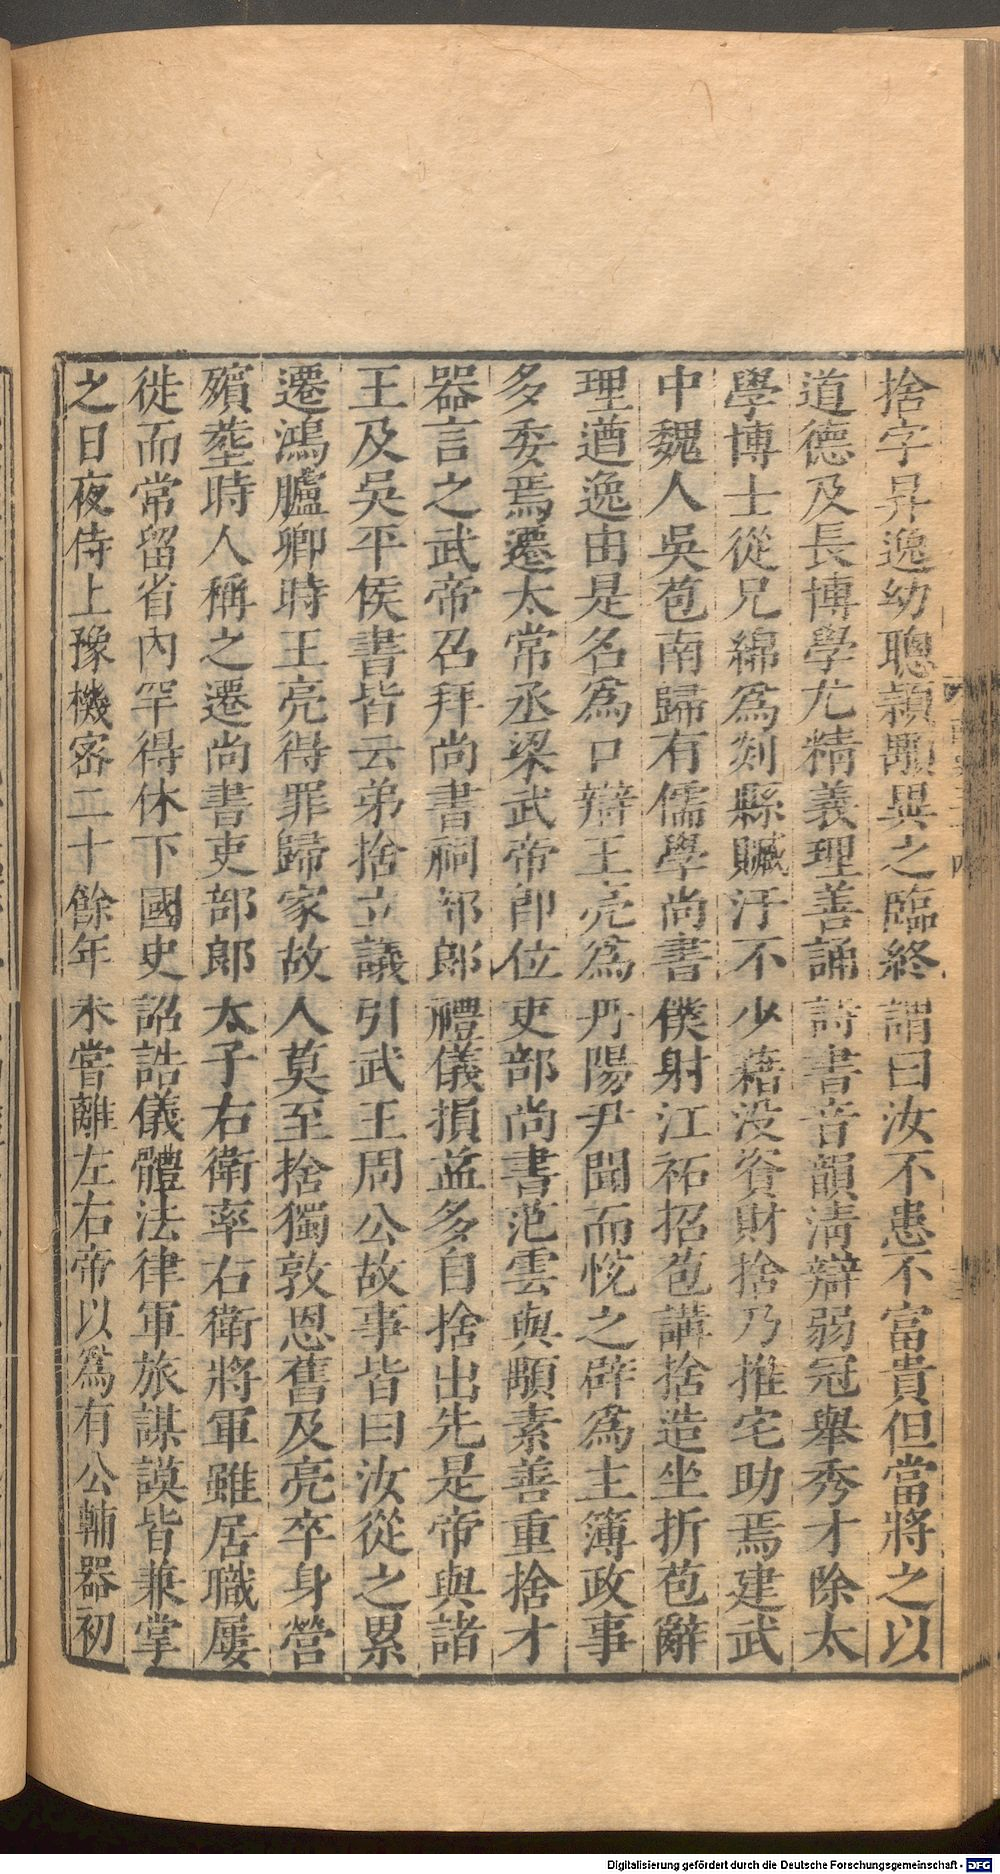 捨字昇逸幼聰穎顒異之臨終謂曰汝不患不富貴但當將之以
道德及長博學尤精義理善誦詩書音韻淸辯弱冠舉秀才除太
學博士從兄綿爲剡縣贓汙不少藉没資財捨乃推宅助焉建武
中魏人吳苞南歸有儒學尚書僕射江祏招苞講捨造坐折苞辭
理遒逸由是名爲口辯王亮爲丹陽尹聞而悅之辟爲主簿政事
多委焉遷太常丞梁武帝卽位吏部尚書范雲與顒素善重捨才
器言之武帝召拜尚書祠部郎禮儀損益多自捨出先是帝與諸
王及吳平侯書皆云弟捨立議引武王周公故事皆曰汝從之累
遷鴻臚卿時王亮得罪歸家故人莫至捨獨敦恩舊及亮卒身營
殯塟時人稱之遷尚書吏部郎太子右衛率右衛將軍雖居職屢
徙而常留省內罕得休下國史詔誥儀體法律軍旅謀謨皆兼掌
之日夜侍上豫機密二十餘年未嘗離左右帝以爲有公輔器初
Digitalisierung gefördert durch die Deutsche Forschungsgemeinschaft - DFG